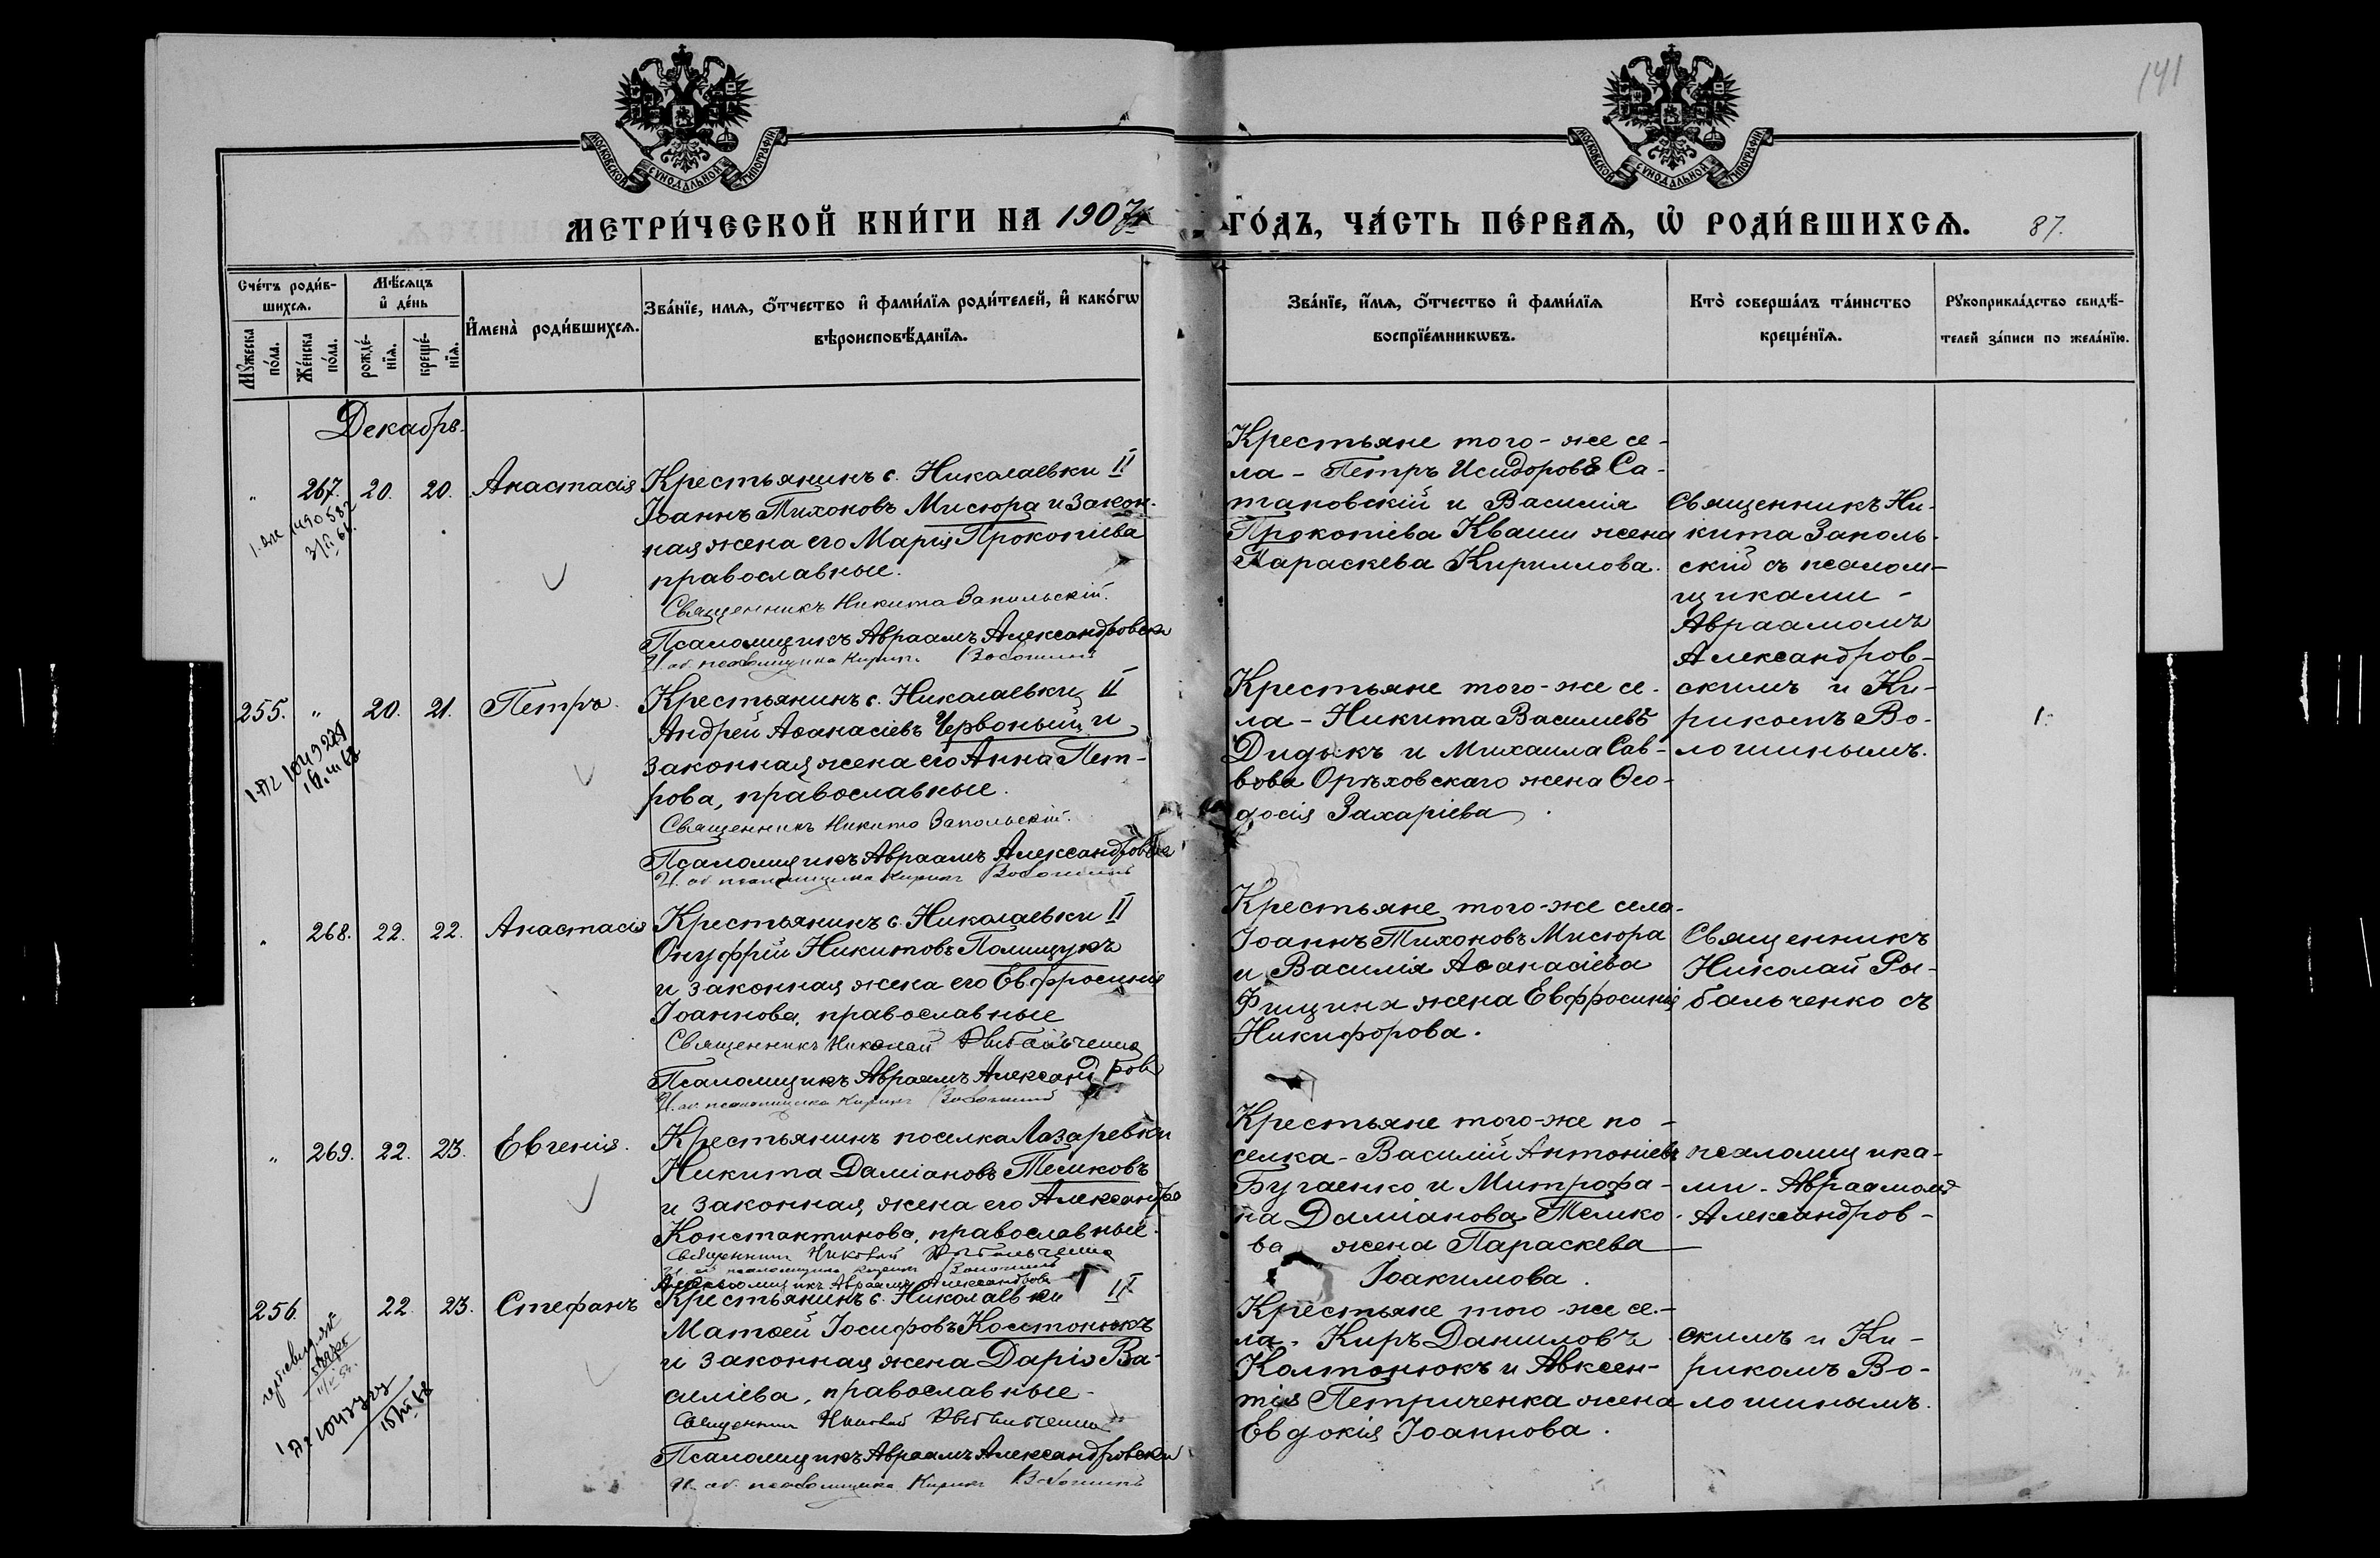 141
МОСКОВСКОЙ СУНОДАЛЬНОЙ ТИПОГРАФІИ
МОСКОВСКОЙ СУНОДАЛЬНОЙ ТИПОГРАФІИ
МЕТРИ́ЧЕСКОЙ КНИ́ГИ НА 1907
ГО́ДЪ, ЧА́СТЬ ПЕ́РВАѦ, Ѡ РОДИ́ВШИХСѦ. 87.
Сче́тъ роди́в-
шихсѧ.
Мꙋжеска
по́ла.
Же́нска
по́ла.
Мѣ́сѧцъ
и҆ де́нь
рожде́-
нїѧ.
креще́-
нїѧ.
И҆мена̀ роди́вшихсѧ.
Зва́нїе, имѧ, ѻ҆́тчество и҆ фами́лїѧ роди́телей, и҆ како́гѡ
вѣроисповѣ́данїѧ.
Зва́нїе, и҆́мѧ, ѻ҆́тчество и҆ фами́лїѧ
воспрїе́мникѡвъ.
Кто̀ соверша́лъ та́инство
креще́нїѧ.
Рꙋкоприкла́дство свидѣ́-
телей за́писи по жела́нїю.
Декабрь.
" 267. 20. 20. Анастасія
Крестьянинъ с. Николаевки II
Іоаннъ Тихоновъ Мисюра и закон-
ная жена его Марія Прокопіева
православные.
Священникъ Никита Запольскій.
Псаломщикъ Авраамъ Александровскі
И. об. псаломщика Кирикъ Волошинъ
Крестьяне того-же се-
ла - Петръ Исидоровъ Са-
тановскій и Василія
Прокопіева Кваши жена
Параскева Кириллова.
Священникъ Ни-
кита Заполь-
скій съ псалом-
щиками -
Авраамомъ
Александров-
скимъ и Ки-
рикомъ Во-
лошинымъ.
255. " 20. 21. Петръ.
Крестьянинъ с. Николаевки II
Андрей Аѳанасіевъ Червоный и
законная жена его Анна Пет-
рова, православные.
Священникъ Никита Запольскій.
Псаломщикъ Авраамъ Александровскі
И. об. псаломщика Кирикъ Волошинъ
Крестьяне того-же се-
ла - Никита Василіевъ
Дидыкъ и Михаила Сав-
вова Орѣховскаго жена Ѳео-
досія Захаріева
1.
" 268. 22. 22. Анастасія
Крестьянинъ с. Николаевки II
Онуфрій Никитовъ Полищукъ
и законная жена его Евфросинія
Іоаннова, православные
Священникъ Николай Рыбальченко
Псаломщикъ Авраамъ Александров
И. об. псаломщика Кирикъ Волошинъ
Крестьяне того-же села-
Іоаннъ Тихоновъ Мисюра
и Василія Аѳанасіева
Фищина жена Евфросинія
Никифорова.
Священникъ
Николай Ры-
бальченко съ
" 269. 22. 23. Евгенія.
Крестьянинъ поселка Лазаревки
Никита Даміановъ Темиковъ
и законная жена его Александра
Константинова, православные.
Священникъ Николай Рыбальченко
И. об. псаломщика Кирикъ Волошинъ
Псаломщикъ Авраамъ Александровс
Крестьяне того-же по-
селка - Василій Антоніевъ
Бугаенко и Митрофа-
на Даміанова Темико-
ва жена Параскева
Іоакимова.
псаломщика-
ми - Авраамомъ
Александров-
256. 22. 23. Стефанъ
Крестьянинъ с. Николаевки II
Матѳей Іосифовъ Колтонюкъ
и законная жена Дарія Ва-
силіева, православные -
Священникъ Николай Рыбальченко
Псаломщикъ Авраамъ Александровскі
И. об. псаломщика Кирикъ Волошинъ
Крестьяне того-же се-
ла - Киръ Даниловъ
Колтонюкъ и Авксен-
тія Петриченка жена
Евдокія Іоаннова.
скимъ и Ки-
рикомъ Во-
лошинымъ.